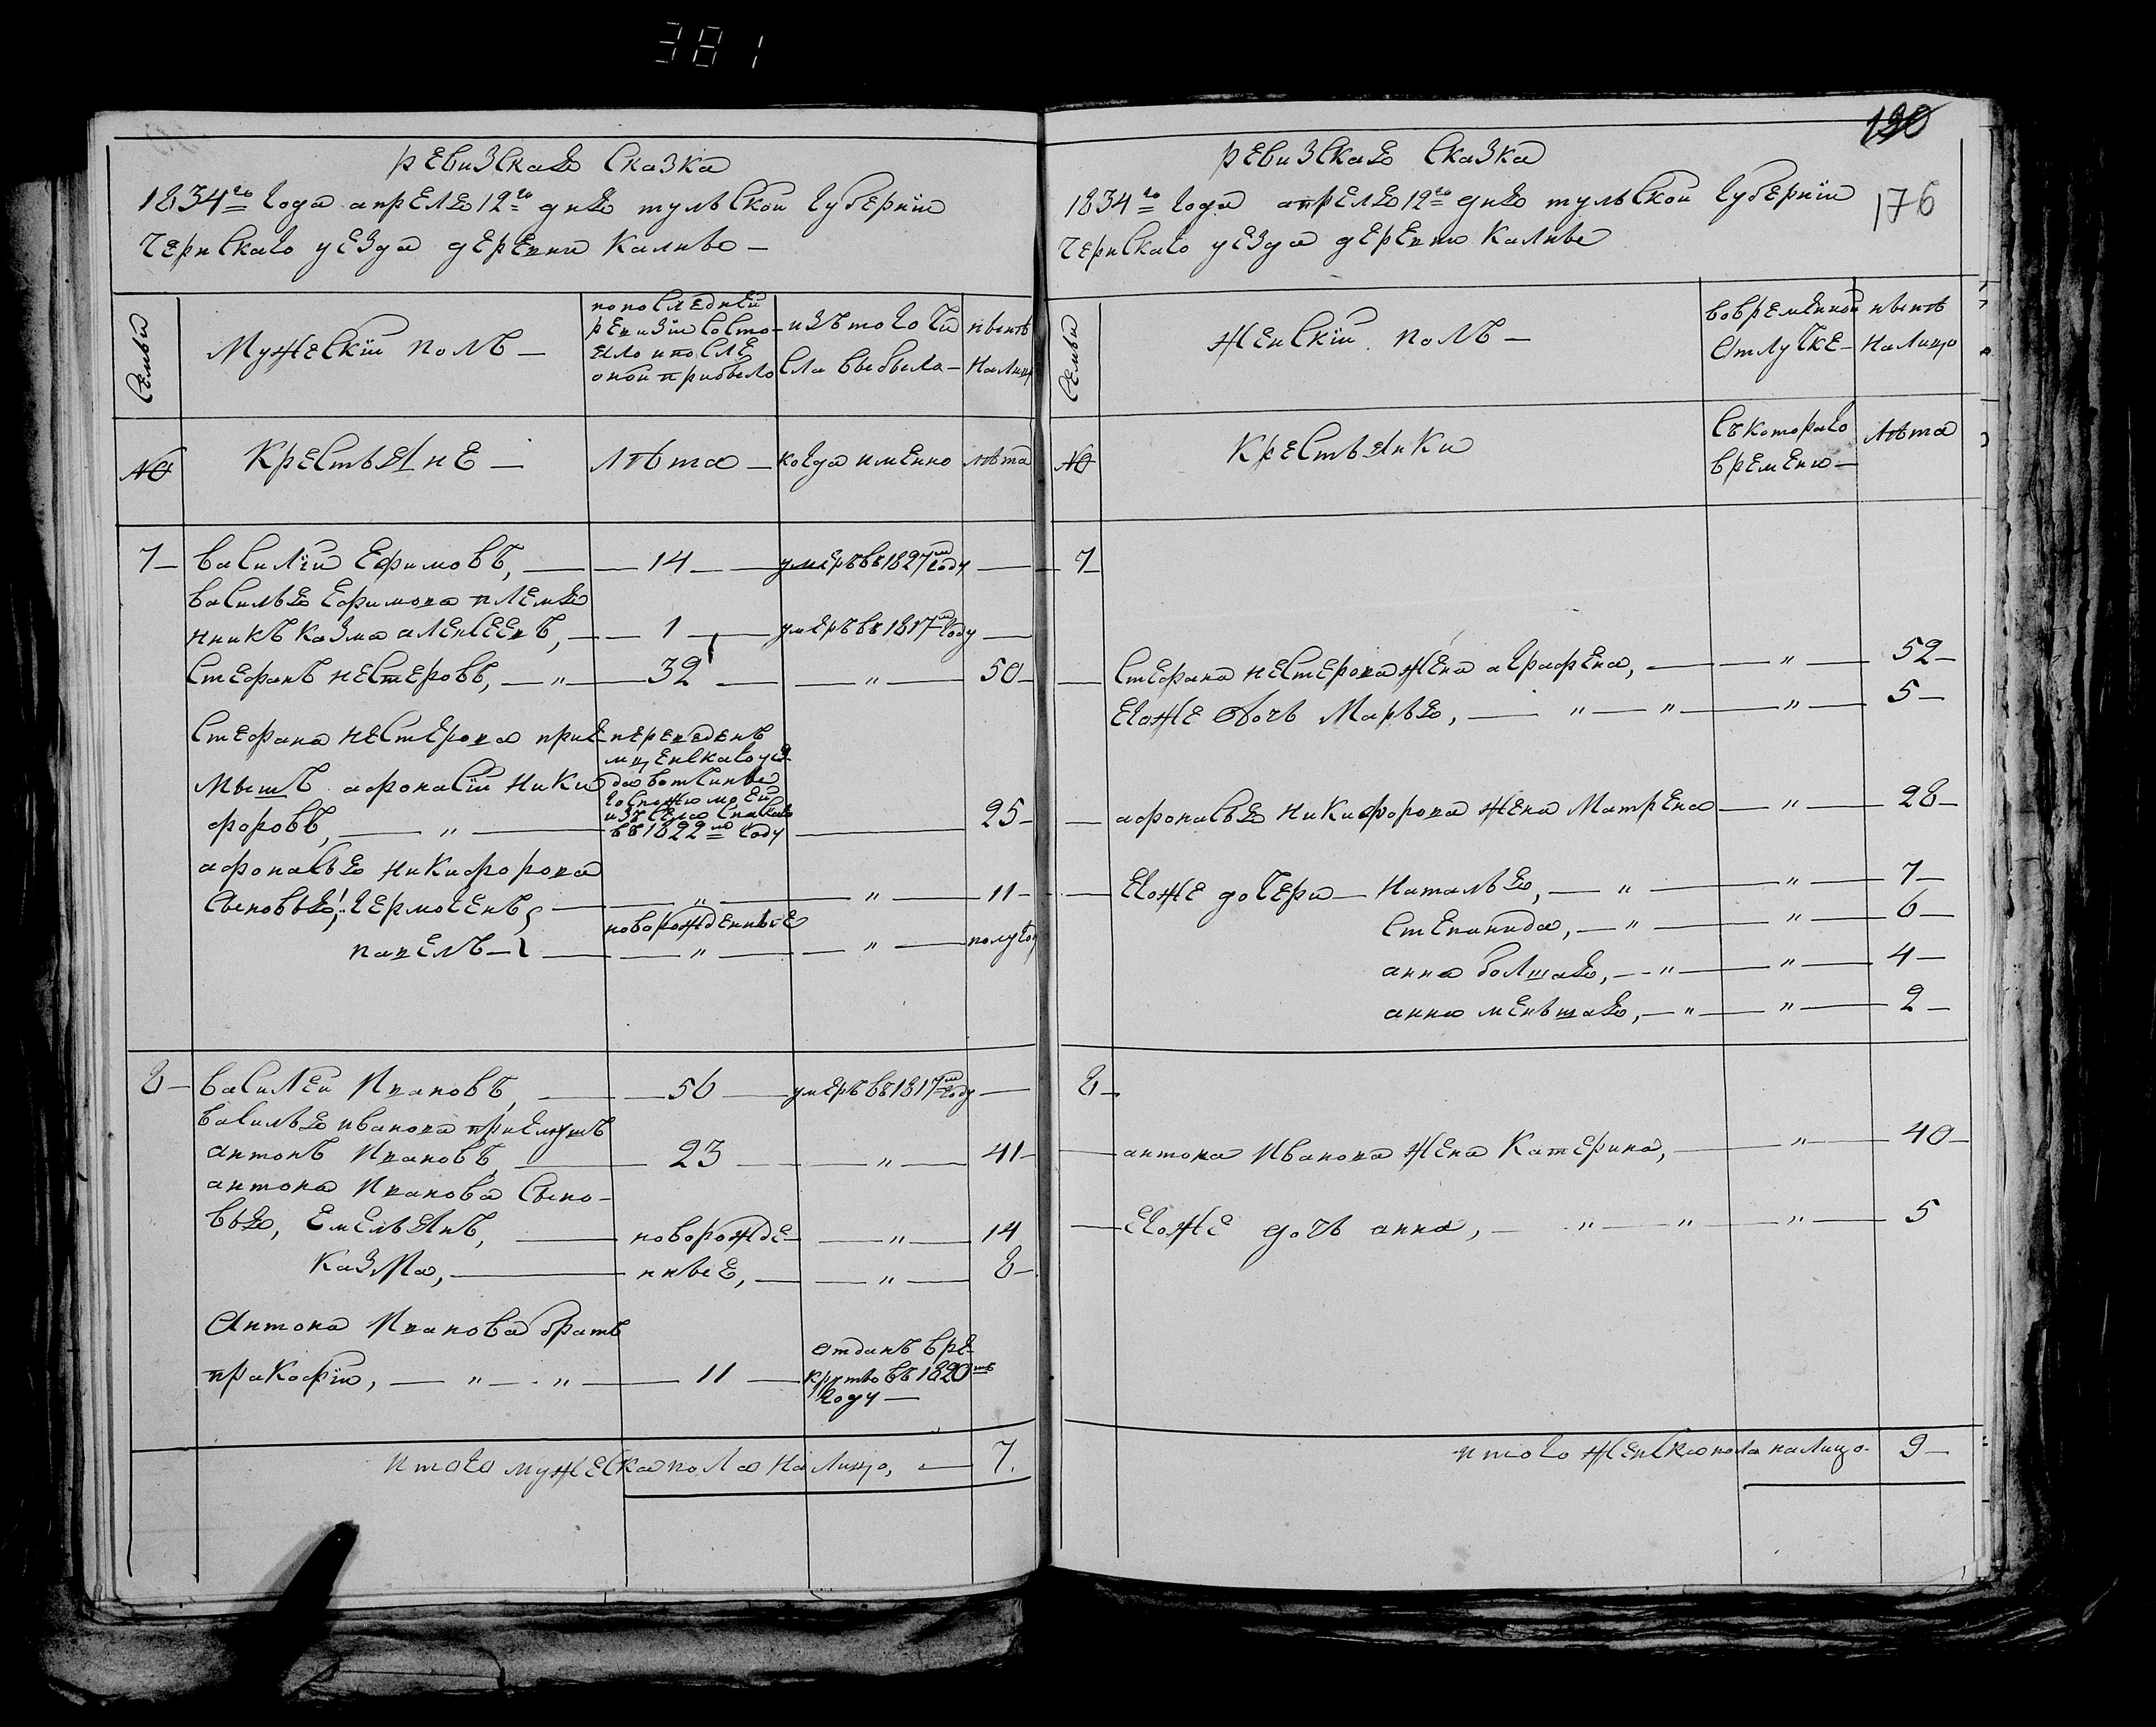 381
ревизская сказка
1834го года апреля 12го дня тульской губернiи
чернскаго уезда деревни Каливо —
семьи
Мужескiй полъ —
по последней
ревизiи состо-
яло и после
оной прибыло
изътого чи
сла выбыло —
ныне
налицо
№
Крестьяне —
лѣта —
когда именно
лѣта
7 — василiй Ефимовъ, — 14 — умеръ въ 1827м году —
василья Ефимова племя
нникъ казма алексеевъ, — 1 — умеръ въ 1817м году —
стефанъ нестеровъ, — " — 32 — " — 50 —
стефана нестерова прие
мышъ афонасiй Ники
форовъ, — " —
переведенъ
мценскаго уез
да вотчины
госпожи моей
изъ села спаскаго
въ 1822м году
— 25 —
афонасья никифорова
сыновья: гермогенъ, — " — " — 11 —
новорожденные
павелъ — " — " — полугод
8 — василей Ивановъ, — 56 — умеръ въ 1817м году —
василья иванова приемышъ
антонъ Ивановъ, — 23 — " — 41 —
антона Иванова сыно-
вья, Емельянъ, — новорожде — " — 14
казма, — нные, — " — 8 —
Антона Иванова братъ
пракофiй, — " — " — 11 —
отданъ в ре-
круты въ 1820мъ
году —
итого мужеска пола налицо, — 7.
190
176
ревизская сказка
1834го года апреля 12го дня тульской губернiи
чернскаго уезда деревни Каливо
семьи
женскiй полъ —
вовременной
отлучке —
ныне
налицо
№
Крестьянки
съкотораго
времени —
лѣта
7 —
— стефана нестерова жена аграфена, — " — 52 —
егоже дочь Марья, — " — " — " — 5 —
— афонасья никифорова жена Матрена — " — 28 —
— егоже дочери — Наталья, — " — " — 7 —
степанида, — " — " — 6 —
анна болшая, — " — " — 4 —
анна меньшая, — " — " — 2 —
8 —
— антона Иванова жена Катерина, — " — 40 —
— егоже дочь анна, — " — " — " — 5
итого женска пола налицо. 9 —